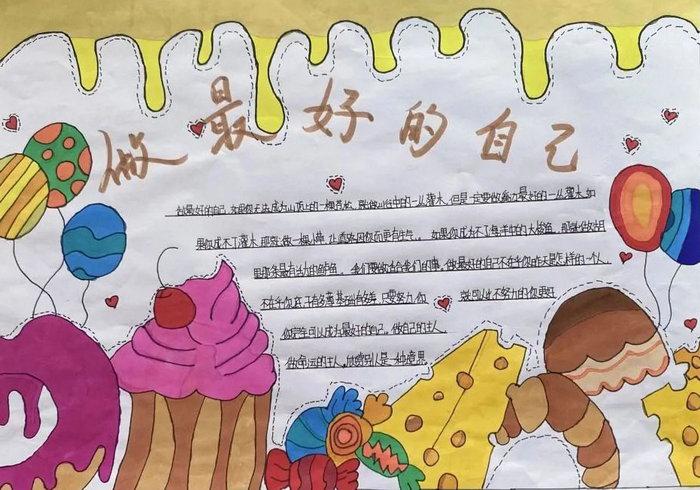 做最好的自己
做最好的自己,如果你无法成为山顶上的一棵苍松,就做山谷中的一丛灌木,但是一定要做溪边最好的一丛灌木,如
果你成不了灌木,那就做一棵小草,让道路因你而更有生气。如果你成为不了海洋中的大鲸鱼,那就做
里最有活力的鲈鱼。我们要做最好的自己不在于你昨天是怎样的一个人,
不在于你底子有多薄基础有多差,只要努力,你 就是以往不努力的你更好
你完全可以成为最好的自己,做自己的主人
做命运的主人,你感觉别人是一种